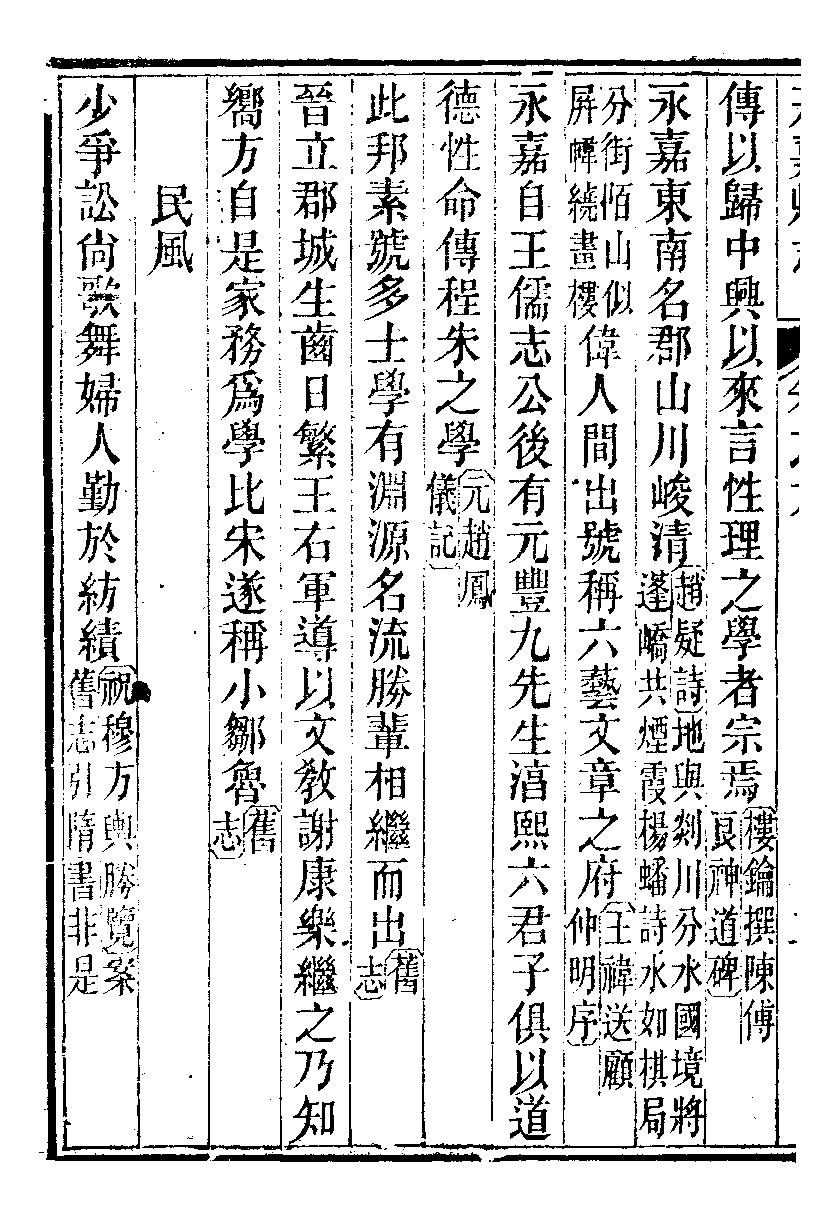 傳以歸中興以來言性理之學者宗焉樓鑰撰陳傅良神道碑
永嘉東南名郡山川峻清趙疑詩地與剡川分水國境將蓬嶠共煙霞楊蟠詩水如棋局
分街陌山似屏幛繞畫樓偉人間出號稱六藝文章之府王禕送顧仲明序
永嘉自王儒志公後有元豐九先生淳熙六君子俱以道
德性命傳程朱之學元趙鳳儀記
此邦素號多士學有淵源名流勝輩相繼而出舊志
晉立郡城生齒日繁王右軍導以文敎謝康樂繼之乃知
嚮方自是家務爲學比宋遂稱小鄒魯舊志
民風
少爭訟尙歌舞婦人勤於紡績祝穆方輿勝覽案舊志引隋書非是